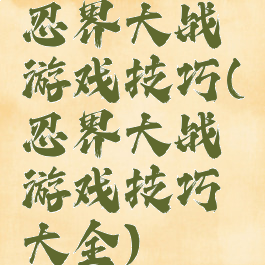 忍界大战
游戏技巧(
忍界大战
游戏技巧
大全)